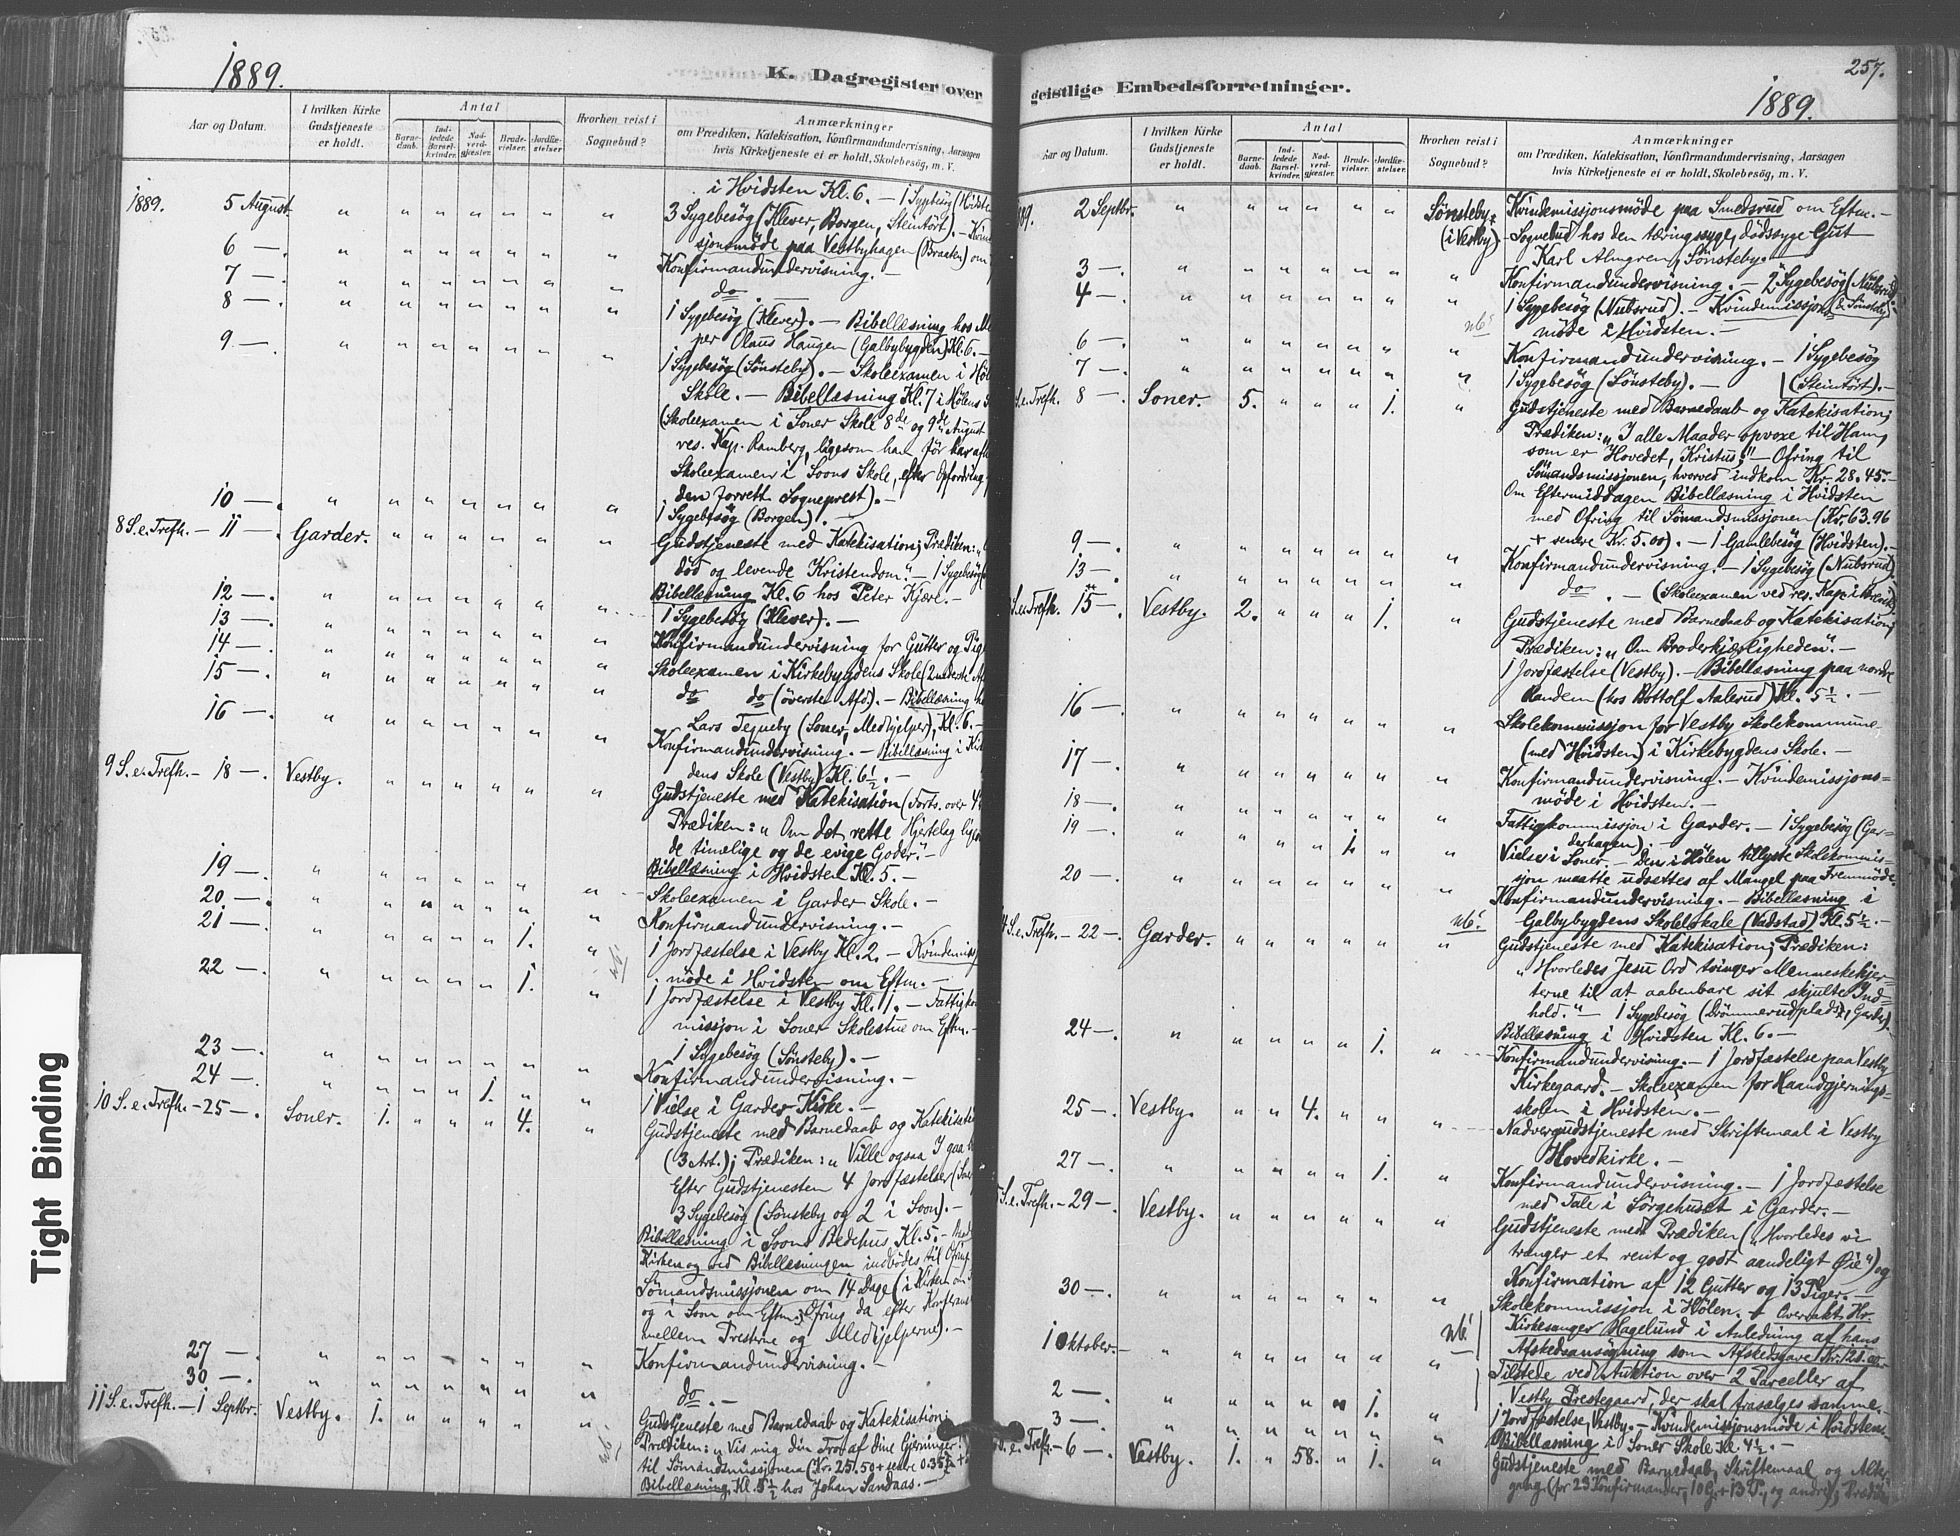 1889.
K. Dagregister over
Aar og Datum.
I hvilken Kirke Gudstjeneste er holdt.
Antal
Barnedaab.
Indledede Barselkvinder.
Nadverdgjæster.
Brudevielser.
Jordfæstelser
Hvorhen reist i Sognebud?
Anmærkninger
om Prædiken, Katekisation, Konfirmandundervisning, Aarsagen
hvis Kirketjeneste ei er holdt, Skolebesøg, m. V.
i Hvidsten Kl. 6. — 1 Sygebesøg (Hvidste
1889. 5 August " " " " " " " 3 Sygebesøg (Klever, Borgen, Steintört). —
sjonsmöde paa Vestbyhagen (Braaten) om
6 —. " " " " " " " Konfirmandundervisning. —
7 —. " " " " " " " do. —
8 —. " " " " " " " 1 Sygebesøg (Klever). — Bibellæsning hos
per Olaus Haugen (Galbybygden) Kl. 6. —
9. —. " " " " " " " 1 Sygebesøg (Sönsteby). — Skoleexamen i Höl
Skole. — Bibellæsning Kl. 7 i Hölens
(Skoleexamen i Soner Skole 8de og 9de August
ves. Kap. Ramberg, ligesom han för har
Skoleexamen i Soons Skole, efter Opfordring
den forrett. Sogneprest). —
10 —. " " " " " " " 1 Sygebesøg (Borgen). —
8 S. e. Trefh. — 11 —. Garder. " " " " " " Gudstjeneste med Katekisation; Prædiken: "
död og levende Kristendom." — 1 Sygebesøg
12 —. " " " " " " " Bibellæsning Kl. 6 hos Peter Kjære. —
13 —. " " " " " " " 1 Sygebesøg (Klever). —
14 —. " " " " " " " Konfirmandundervisning for Gutter og Pig
15 —. " " " " " " " Skoleexamen i Kirkebygdens Skole (2 nederste
do do (överste Afd). — Bibellæsning
16 —. " " " " " " " Lars Tegneby (Soner, Medhjelper), Kl. 6. —
Konfirmandundervisning. — Bibellæsning i
dens Skole (Vestby) Kl. 6½. —
9 S. e. Trefh. — 18 —. Vestby. " " " " " " Gudstjeneste med Katekisation (Forts. over 4
Prædiken: " Om det rette Hjertelag
de timelige og de evige Goder." —
19 —. " " " " " " " Bibellæsning i Hvidsten Kl. 5. —
20 —. " " " " " " " Skoleexamen i Garder Skole. —
21 —. " " " " " 1. " Konfirmandundervisning. —
1 Jordfæstelse i Vestby Kl. 2. — Kvindemiss
möde i Hvidsten om Eftm. —
22 —. " " " " " 1. " 1 Jordfæstelse i Vestby Kl. 11. — Fattigkom
missjon i Soner Skolestue om Eftm. —
1 Sygebesøg (Sönsteby). —
23 —. " " " " " " " Konfirmandundervisning. —
24 —. " " " " 1. " " 1 Vielse i Garder Kirke. —
10 S. e. Trefh. — 25 —. Soner. 1. " " " 4. " Gudstjeneste med Barnedaab og Katekisati
(3 Art.); Prædiken: " Ville ogsaa I gaa
Efter Gudstjenesten 4 Jordfæstelser
3 Sygebesøg (Sönsteby og 2 i Soon). —
Bibellæsning i Soons Bedehus Kl. 5. —
Kirken og ved Bibellæsningen indbödes til Ofring
Sömandsmissjonen om 14 Dage (i Kirken om
og i Soon om Eftm.; Ofring da efter Konferanse
mellem Prestene og Medhjelperne). —
27 —. " " " " " " " Konfirmandundervisning. —
30 —. " " " " " " " do. —
11 S. e. Trefh. — 1 Septbr. Vestby. 1. " " " " " Gudstjeneste med Barnedaab og Katekisation;
Prædiken: " Vis mig din Tro af dine Gjerninger.
til Sömandsmissjonen (Kr. 25.50 + senere 0.35
Bibellæsning Kl. 5½ hos Johan Sandaas. —
Tight Binding
geistlige Embedsforretninger.
257.
1889.
Aar og Datum.
I hvilken Kirke Gudstjeneste er holdt.
Antal
Barnedaab.
Indledede Barselkvinder.
Nadverdgjæster.
Brudevielser.
Jordfæstelser.
Hvorhen reist i Sognebud?
Anmærkninger
om Prædiken, Katekisation, Konfirmandundervisning, Aarsagen
hvis Kirketjeneste ei er holdt, Skolebesøg, m. V.
89. 2 Septbr. " " " " " " Sönsteby (i Vestby) Kvindemissjonsmöde paa Smedsrud om Eftm. —
Sognebud hos den tæringssyge, dödssyge Gut
Karl Almgren, Sönsteby. —
3 —. " " " " " " " Konfirmandundervisning. — 2 Sygebesøg (Nubsrud
4 —. " " " " " " " 1 Sygebesøg (Nubsrud). — Kvindemissjons & Sönsteby).
möde i Hvidsten. —
6 —. " " " " " " " Konfirmandundervisning. — 1 Sygebesøg
7 —. " " " " " " " 1 Sygebesøg (Sönsteby). — (Steintört). —
S. e. Trefh. 8 —. Soner. 5. " " " 1. " Gudstjeneste med Barnedaab og Katekisation;
Prædiken: " I alle Maader opvoxe til Ham,
som er Hovedet, Kristus;" — Ofring til
Sömandsmissjonen, hvorved indkom Kr. 28.45. —
Om Eftermiddagen Bibellæsning i Hvidsten
med Ofring til Sömandsmissjonen (Kr. 63.96
+ senere Kr. 5.00). — 1 Gamlebesøg (Hvidsten). —
9 —. " " " " " " " Konfirmandundervisning. — 1 Sygebesøg (Nubsrud).
13 —. " " " " " " " do. — (Skoleexamen ved res. Kap.
S. e. Trefh. 15 —. Vestby. 2. " " " 1. " Gudstjeneste med Barnedaab og Katekisation;
Prædiken: " Om Broderkjærligheden." —
1 Jordfæstelse (Vestby). — Bibellæsning paa nordre
Randem (hos Bottolf Aalerud) Kl. 5½. —
16 —. " " " " " " " Skolekommissjon for Vestby Skolekommune
(med Hvidsten) i Kirkebygdens Skole. —
17 —. " " " " " " " Konfirmandundervisning. — Kvindemissjons=
möde i Hvidsten. —
18 —. " " " " " " " Fattigkommissjon i Garder. — 1 Sygebesøg (Gar=
derhagen). —
19 —. " " " " 1. " " Vielse i Soner. — Den i Hölen tillyste Skolekommis=
sjon maatte udsettes af Mangel paa Fremmöde.
20 —. " " " " " " " Konfirmandundervisning. — Bibellæsning i
Galbybygdens Skolelokale (Vadstad) Kl. 5½. —
4 S. e. Trefh. — 22 —. Garder. " " " " " " Gudstjeneste med Katekisation; Prædiken:
" Hvorledes Jesu Ord tvinger Menneskehjer=
terne til at aabenbare sit skjulte Ind=
hold." — 1 Sygebesøg (Drömmerudplads, Garder).
Bibellæsning i Hvidsten Kl. 6. —
24 —. " " " " " 1. " Konfirmandundervisning. — 1 Jordfæstelse paa Vestby
Kirkegaard. — Skoleexamen for Haandgjernings=
skolen i Hvidsten. —
25 —. Vestby. " " 4. " " " Nadvergudstjeneste med Skriftemaal i Vestby
Hovedkirke. —
27 —. " " " " " 1. " Konfirmandundervisning. — 1 Jordfæstelse
med Tale i Sörgehuset i Garder. —
S. e. Trefh. — 29 —. Vestby. " " " " " " Gudstjeneste med Prædiken (" Hvorledes vi
trænger et rent og godt aandeligt Øie") og
Konfirmation af 12 Gutter og 13 Piger. —
30 —. " " " " " " " Skolekommissjon i Hölen. — Overrakt Hr.
Kirkesanger Hagelund i Anledning af hans
Afskedsansögning som Afskedsgave Kr. 120.00
1 Oktober. " " " " " " " Tilstede ved Auktion over 2 Parceller af
Vestby Prestegaard, der skal frasælges samme.
2 —. " " " " " 1. " 1 Jordfæstelse, Vestby. — Kvindemissjonsmöde i Hvidsten.
3 —. " " " " " " " Bibellæsning i Soner Skole Kl. 4½. —
S. e. Trefh. — 6 —. Vestby. 1. " 58. " 1. " Gudstjeneste med Barnedaab, Skriftemaal og Alter
gang (for 23 Konfirmander, 10 G. + 13 P., og andre); Prædiken